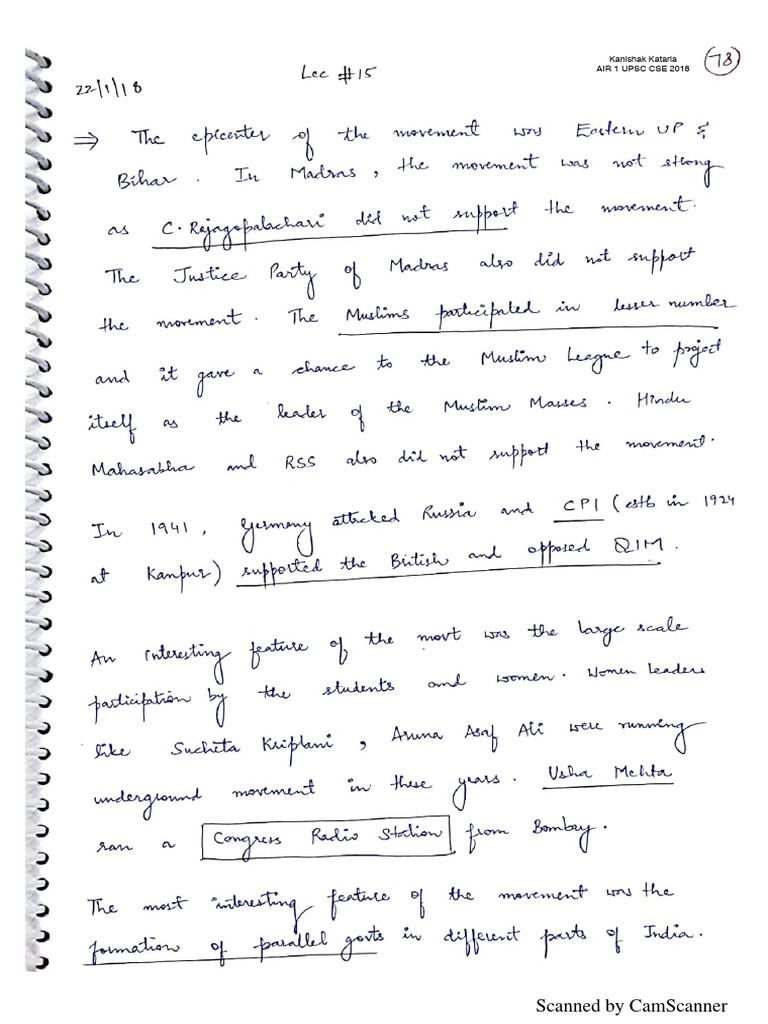 Kanishak Kataria
AIR 1 UPSC CSE 2018
78
22/1/18
Lec #15
⇒ The epicenter of the movement was Eastern UP &
Bihar. In Madras, the movement was not strong
as C. Rajagopalachari did not support the movement.
The Justice Party of Madras also did not support
the movement. The Muslims participated in lesser number
and it gave a chance to the Muslim League to project
itself as the leader of the Muslim Masses. Hindu
Mahasabha and RSS also did not support the movement.
In 1941, Germany attacked Russia and CPI (estb in 1924
at Kanpur) supported the British and opposed QIM.
An interesting feature of the movt was the large scale
participation by the students and women. Women leaders
like Sucheta Kriplani, Aruna Asaf Ali were running
underground movement in these years. Usha Mehta
ran a Congress Radio Station from Bombay.
The most interesting feature of the movement was the
formation of parallel govts in different parts of India.
Scanned by CamScanner